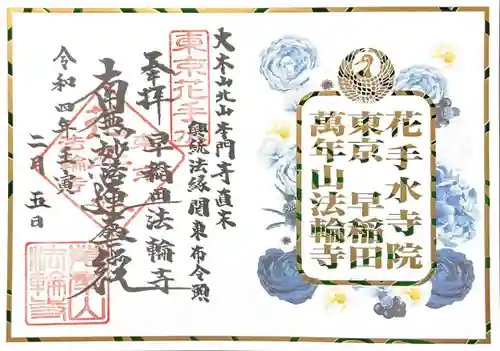 花手水寺院
東京 早稲田
萬年山法輪寺
大本山北山本門寺直末
興統法縁関東布令頭
東京花手水
奉拝 早稲田法輪寺
南無妙法蓮華経
令和四年壬寅
二月五日